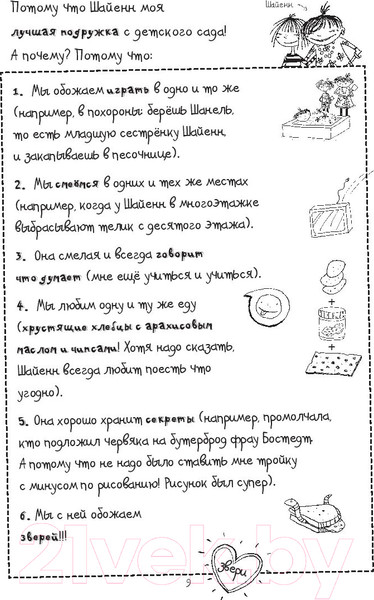 Потому что Шайенн моя
лучшая подружка с детского сада!
А почему? Потому что:
Шайенн
1. Мы обожаем играть в одно и то же
(например, в похороны: берёшь Шанель,
то есть младшую сестрёнку Шайенн,
и закапываешь в песочнице).
2. Мы смеёмся в одних и тех же местах
(например, когда у Шайенн в многоэтажке
выбрасывают телик с десятого этажа).
3. Она смелая и всегда говорит
что думает (мне ещё учиться и учиться).
4. Мы любим одну и ту же еду
(хрустящие хлебцы с арахисовым
маслом и чипсами! Хотя надо сказать,
Шайенн всегда любит поесть что
угодно).
+
+
5. Она хорошо хранит секреты (например, промолчала,
кто подложил червяка на бутерброд фрау Бостедт.
А потому что не надо было ставить мне тройку
с минусом по рисованию! Рисунок был супер).
6. Мы с ней обожаем
зверей!!!
звери
9
21vek.by